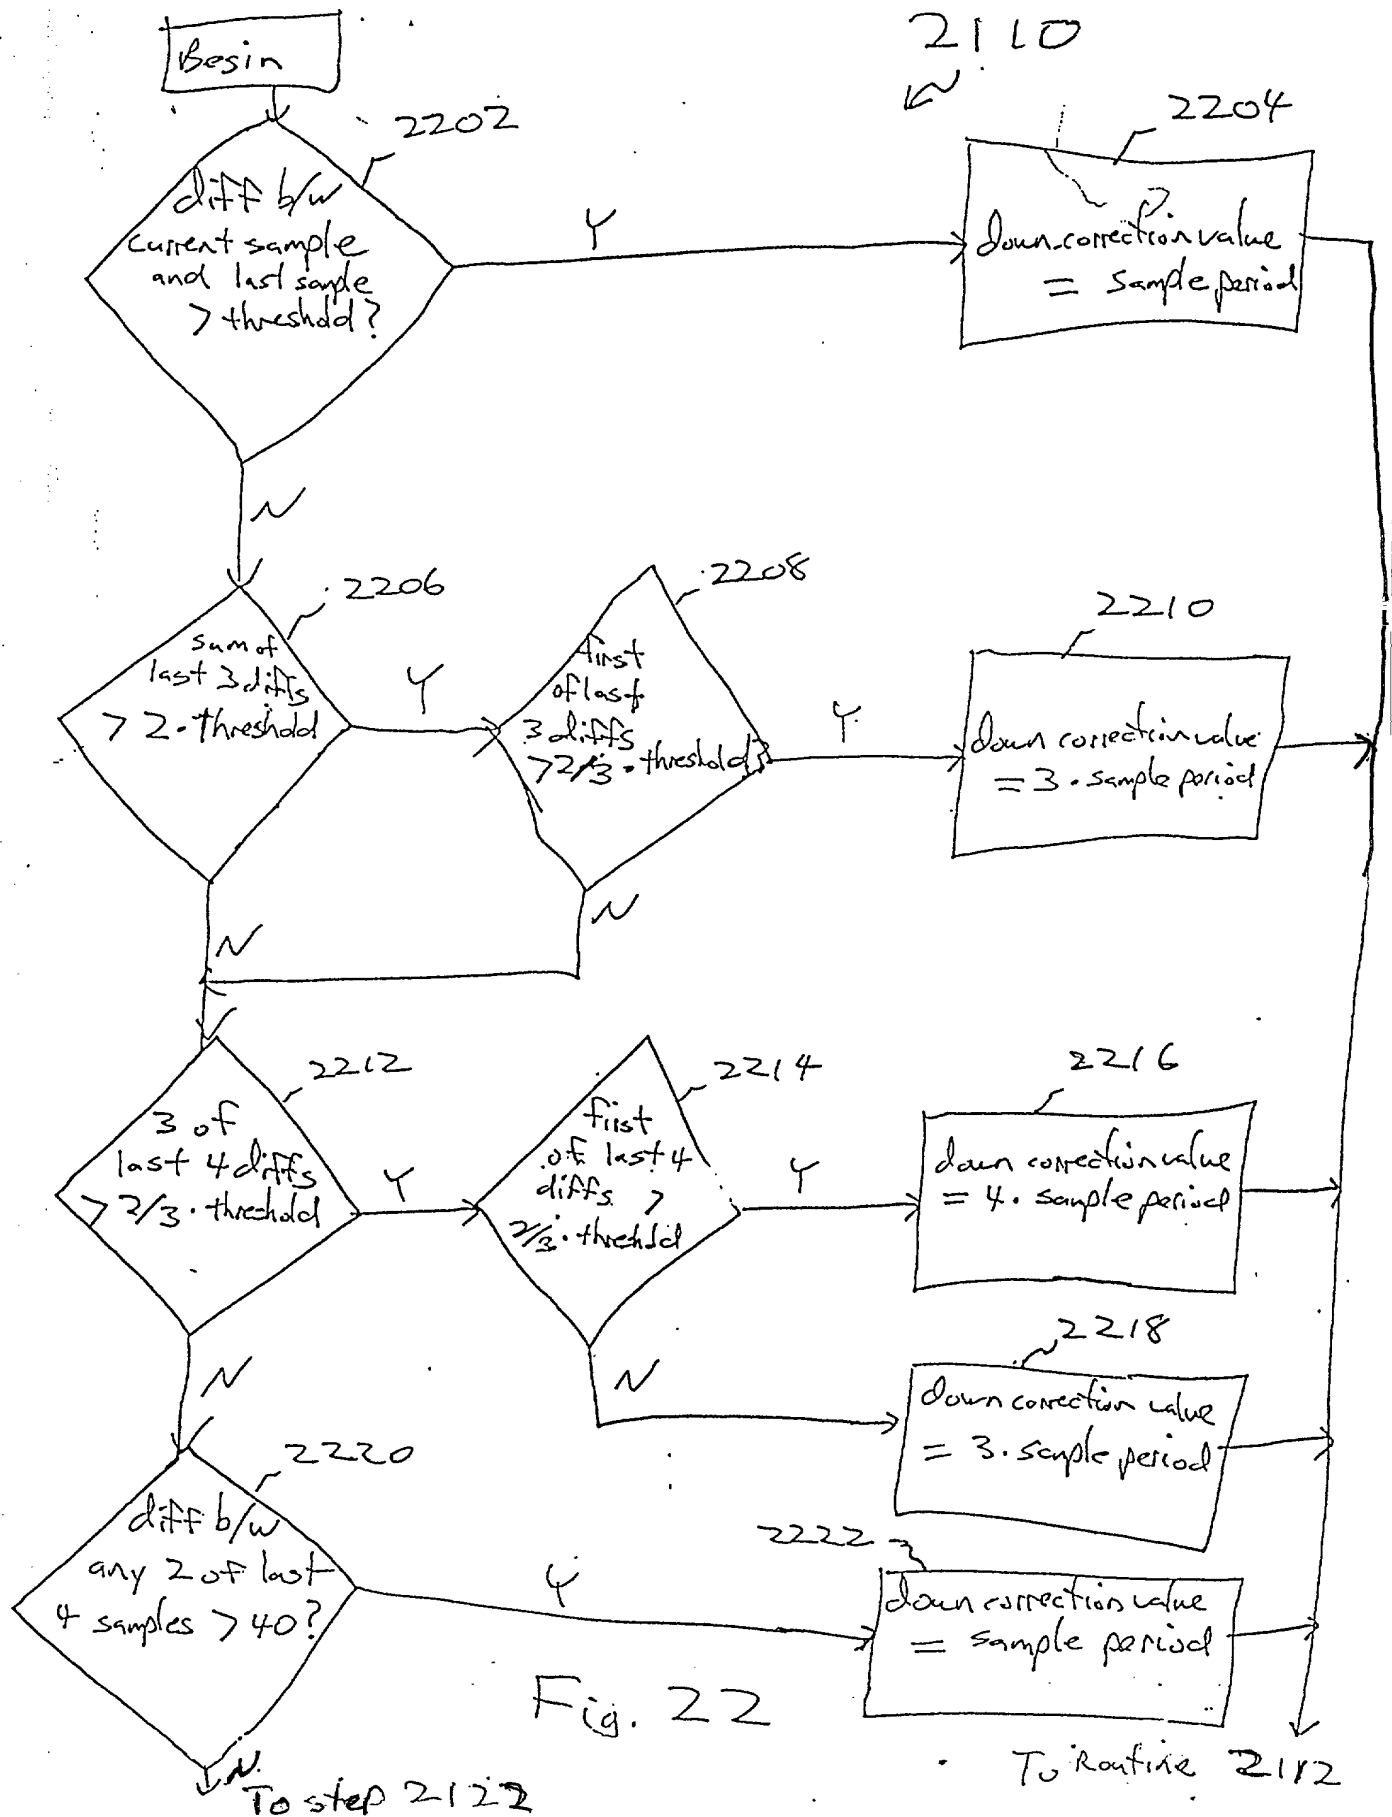 Begin
2110
2202
2204
diff b/w
current sample
and last sample
> threshold?
Y
down correction value
= sample period
N
2206
2208
2210
sum of
last 3 diffs
> 2 · threshold
Y
first
of last
3 diffs
> 2/3 · threshold?
Y
down correction value
= 3 · sample period
N
N
2212
2214
2216
3 of
last 4 diffs
> 2/3 · threshold
Y
first
of last 4
diffs >
2/3 · threshold
Y
down correction value
= 4 · sample period
N
N
2218
down correction value
= 3 · sample period
2220
2222
diff b/w
any 2 of last
4 samples > 40?
Y
down correction value
= sample period
Fig. 22
N
To step 2122
To Routine 2112